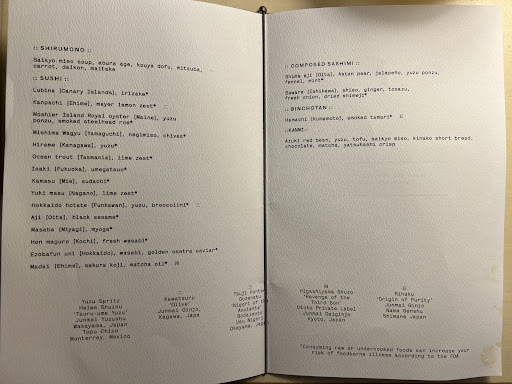 :: SHIRUMONO ::
Saikyo miso soup, abura age, kouya dofu, mitsuba,
carrot, daikon, maitake
:: SUSHI ::
Lubina [Canary Islands], irizake*
Kanpachi [Ehime], mayer lemon zest*
Moshier Island Royal oyster [Maine], yuzu
ponzu, smoked steelhead roe*
Mishima Wagyu [Yamaguchi], negimiso, chives*
Hirame [Kanagawa], yuzu*
Ocean trout [Tasmania], lime zest*
Isaki [Fukuoka], umegatsuo*
Kamasu [Mie], sudachi*
Yuki masu [Nagano], lime zest*
Hokkaido hotate [Funkawan], yuzu, broccolini*
Aji [Oita], black sesame*
Masaba [Miyagi], myoga*
Hon maguro [Kochi], fresh wasabi*
Ezobafun uni [Hokkaido], wasabi, golden osetra caviar*
Madai [Ehime], sakura koji, matcha oil*
Yuzu Spritz
Heiwa Shuzou
'Tsuru-ume Yuzu'
Junmai Yuzushu
Wakayama, Japan
Topo Chico
Monterrey, Mexico
Kawatsuru
'Olive'
Junmai Ginjo,
Kagawa, Japa
Tsuji Honten
Gozenshu
Nigori of the
Bodaimoto
Usu Nigori
Okayama, Japan
:: COMPOSED SASHIMI ::
Shima aji [Oita], Asian pear, jalapeño, yuzu ponzu,
fennel, mint*
Sawara [Ishikawa], shiso, ginger, tosazu,
fresh onion, dried shimeji*
:: BINCHOTAN ::
Hamachi [Kumamoto], smoked tamari*
::KANMI::
Azuki red bean, yuzu, tofu, saikyo miso, kinako short bread,
chocolate, matcha, yatsuhashi crisp
Higashiyama Shuzo
'Revenge of the
Third Son'
Otoko Private Label
Junmai Daiginjo
Kyoto, Japan
Rihaku
'Origin of Purity'
Junmai Ginjo
Nama Genshu
Shimane Japan
*Consuming raw or undercooked foods can increase your
risk of foodborne illness according to the FDA